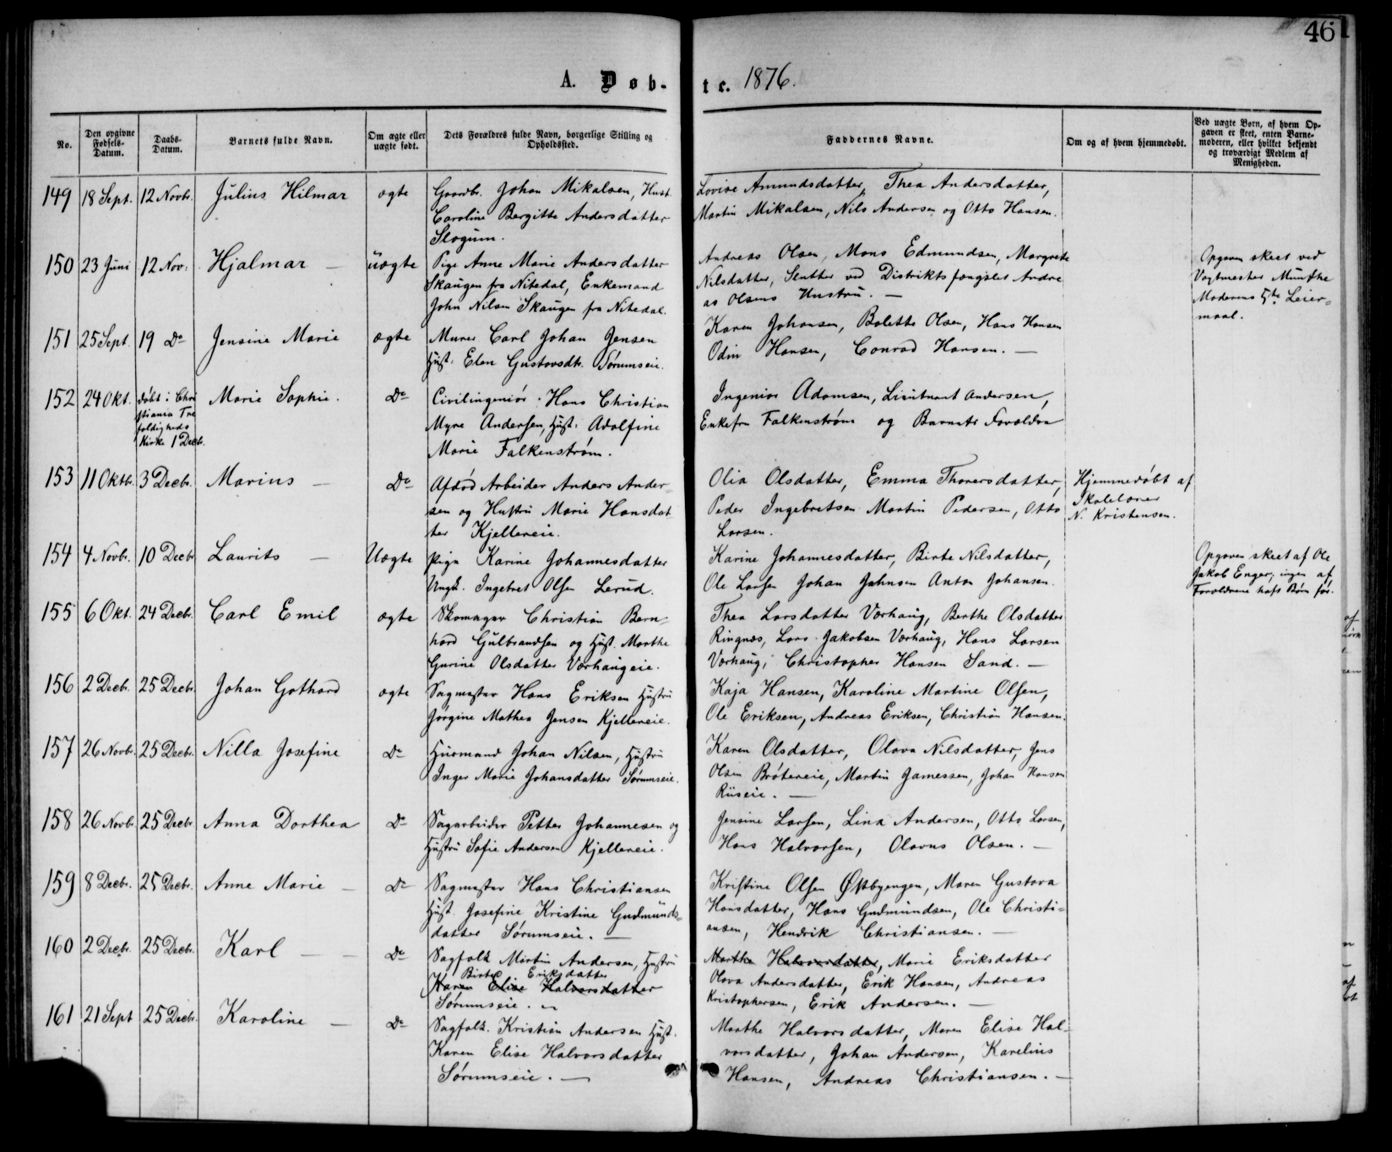 46
A. Døb-te. 1876.
No.
Den opgivne Fødsels-Datum.
Daabs-Datum.
Barnets fulde Navn.
Om ægte eller uægte født.
Dets Forældres fulde Navn, borgerlige Stilling og Opholdssted.
Faddernes Navne.
Om og af hvem hjemmedøbt.
Ved uægte Børn, af hvem Opgaven er skeet, enten Barnemoderen, eller hvilket bekjendt og troværdigt Medlem af Menigheden.
149 18 Sept. 12 Novb. Julius Hilmar ægte
Gaardb. Johan Mikalsen, Hust.
Caroline Bergitte Andersdatter
Slogum.
Lovise Amundsdatter, Thea Andersdatter,
Martin Mikalsen, Nils Andersen og Otto Hansen.
150 23 Juni 12 Nov. Hjalmar — uægte
Pige Anne Marie Andersdatter
Skaugen fra Nitedal, Enkemand
John Nilsen Skaugen fra Nitedal.
Andreas Olsen, Mons Edmundsen, Margrete
Nilsdatter, Slutter ved Distriktsfængslet Andre
as Olsens Hustru. —
Opgaven skeet ved
Vagtmester Munthe
Moderens 5te Leier-
maal.
151 25 Sept. 19 Do Jensine Marie ægte
Murer Carl Johan Jensen
Hust. Elen Gustavsdt. Sørumseie.
Karen Johansen, Bolette Olsen, Hans Hansen
Odin Hansen, Conrad Hansen. —
152 24 Okt. døbt i Chri
stiania Tre
foldigheds
Kirke 1 Decb.
Marie Sophie. Do
Civilingeniør Hans Christian
Myre Andersen, Hust. Adolfine
Marie Falkenstrøm.
Ingeniør Adamsen, Lieutnant Andersen,
Enkefru Falkenstrøm og Barnets Forældre
153 11 Oktb. 3 Decb. Marius — Do
Afdød Arbeider Anders Ander-
sen og Hustru Marie Hansdat
ter Kjellereie.
Olia Olsdatter, Emma Thorersdatter,
Peder Ingebretsen Martin Pedersen, Otto
Larsen.
Hjemmedøbt af
Skolelærer
N. Kristensen.
154 4 Novb. 10 Decb. Laurits — Uægte
Pige Karine Johannesdatter
Ungk. Ingebret Olsen Lerud.
Karine Johannesdatter, Birte Nilsdatter,
Ole Larsen Johan Johnsen Anton Johansen.
Opgaven skeet af Ole
Jakob Enger, ingen af
Forældrene haft Børn før.
155 6 Okt. 24 Decb. Carl Emil ægte
Skomager Christian Bern-
hard Gulbrandsen og Hust. Marthe
Gurine Olsdatter Vorhaugeie.
Thea Larsdatter Vorhaug, Berthe Olsdatter
Ringnæs, Lars Jakobsen Vorhaug, Hans Larsen
Vorhaug, Christopher Hansen Sand. —
156 2 Decb. 25 Decb. Johan Gothard ægte
Sagmester Hans Eriksen Hustru
Jørgine Mathea Jensen Kjellereie.
Kaja Hansen, Karoline Martine Olsen,
Ole Eriksen, Andreas Eriksen, Christian Hansen.
157 26 Novb. 25 Decb. Nilla Josefine Do
Husmand Johan Nilsen, Hustru
Inger Marie Johansdatter Sørumseie.
Karen Olsdatter, Olava Nilsdatter, Jens
Olsen Bråtereie, Martin Jamessen, Johan Hansen
Riiseie. —
158 26 Novb. 25 Decb. Anna Dorthea Do
Sagarbeider Petter Johannesen og
Hustru Sofie Andersen Kjellereie.
Jensine Larsen, Lina Andersen, Otto Larsen,
Hans Halvorsen, Olavus Olsen. —
159 8 Decb. 25 Decb. Anne Marie — Do
Sagmester Hans Christiansen
Hust. Josefine Kristine Gudmunds-
datter Sørumseie. —
Kristine Olsen Østbyengen, Maren Gustava
Hansdatter, Hans Gudmundsen, Ole Christi-
ansen, Hendrik Christiansen. —
160 2 Decb. 25 Decb. Karl — Do
Sagfolk Martin Andersen, Hustru
Birte Eriksdatter
Karen Elise Halvorsdatter
Sørumseie. —
Marthe Halvorsdatter, Marie Eriksdatter
Olava Andersdatter, Erik Hansen, Andreas
Kristophersen, Erik Andersen. —
161 21 Sept 25 Decb. Karoline — Do
Sagfolk. Kristian Andersen Hust.
Karen Elise Halvorsdatter
Sørumseie. —
Marthe Halvorsdatter, Maren Elise Hal-
vorsdatter, Johan Andersen, Karelius
Hansen, Andreas Christiansen. —